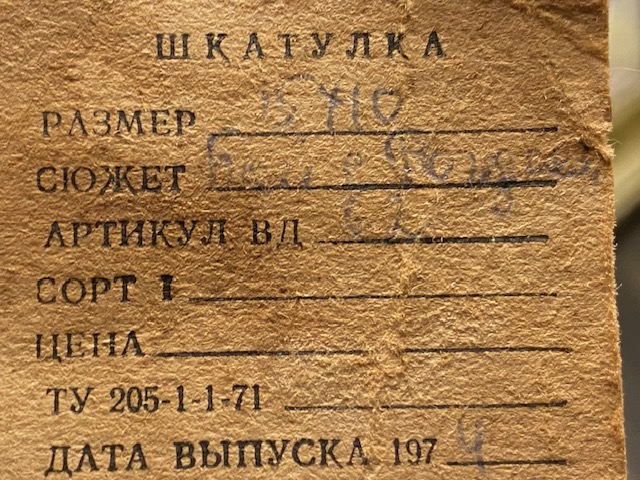 ШКАТУЛКА
РАЗМЕР
СЮЖЕТ
АРТИКУЛ ВД
СОРТ I
ЦЕНА
ТУ 205-1-1-71
ДАТА ВЫПУСКА 1974